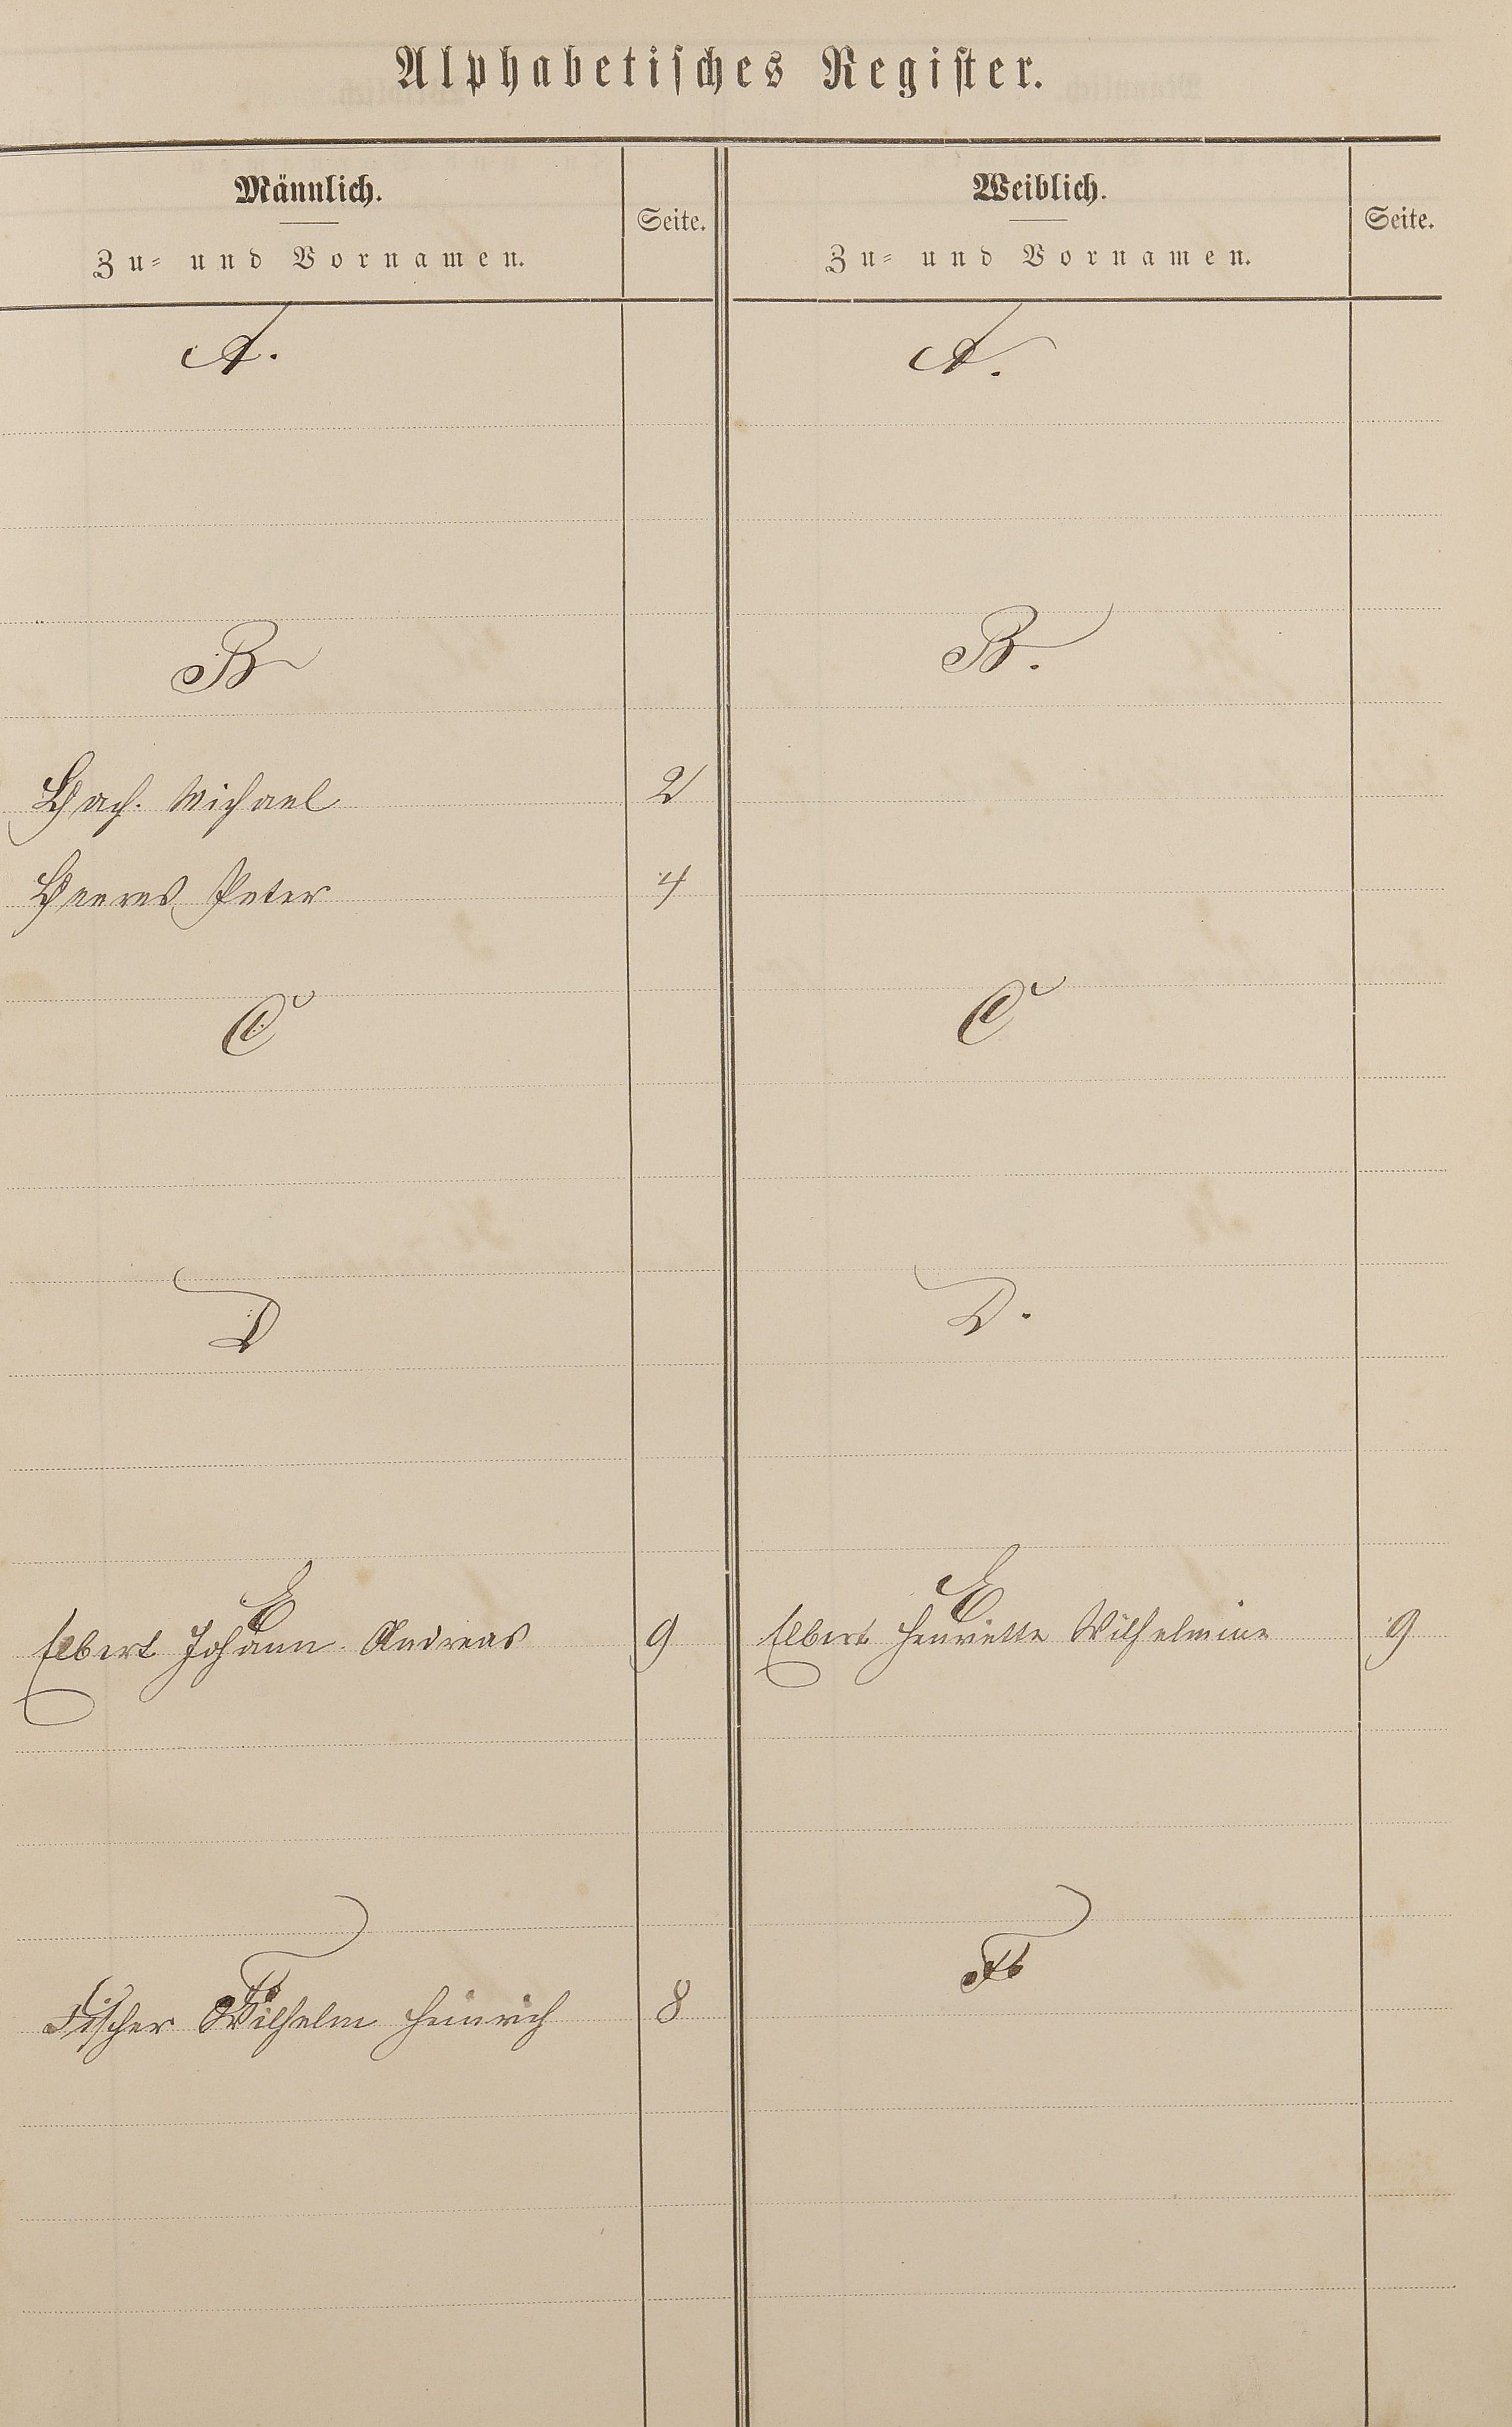 Alphabetisches Register.
Männlich.
Zu- und Vornamen.
Seite.
Weiblich.
Zu- und Vornamen.
Seite.
A.
A.
B
B.
Bach. Michael 2
Beeres Peter 4
C
C
D
D.
E
E
Elbert Johann Andreas 9
Elbert Henriette Wilhelmine 9
F
F
Fischer Wilhelm Heinrich 8